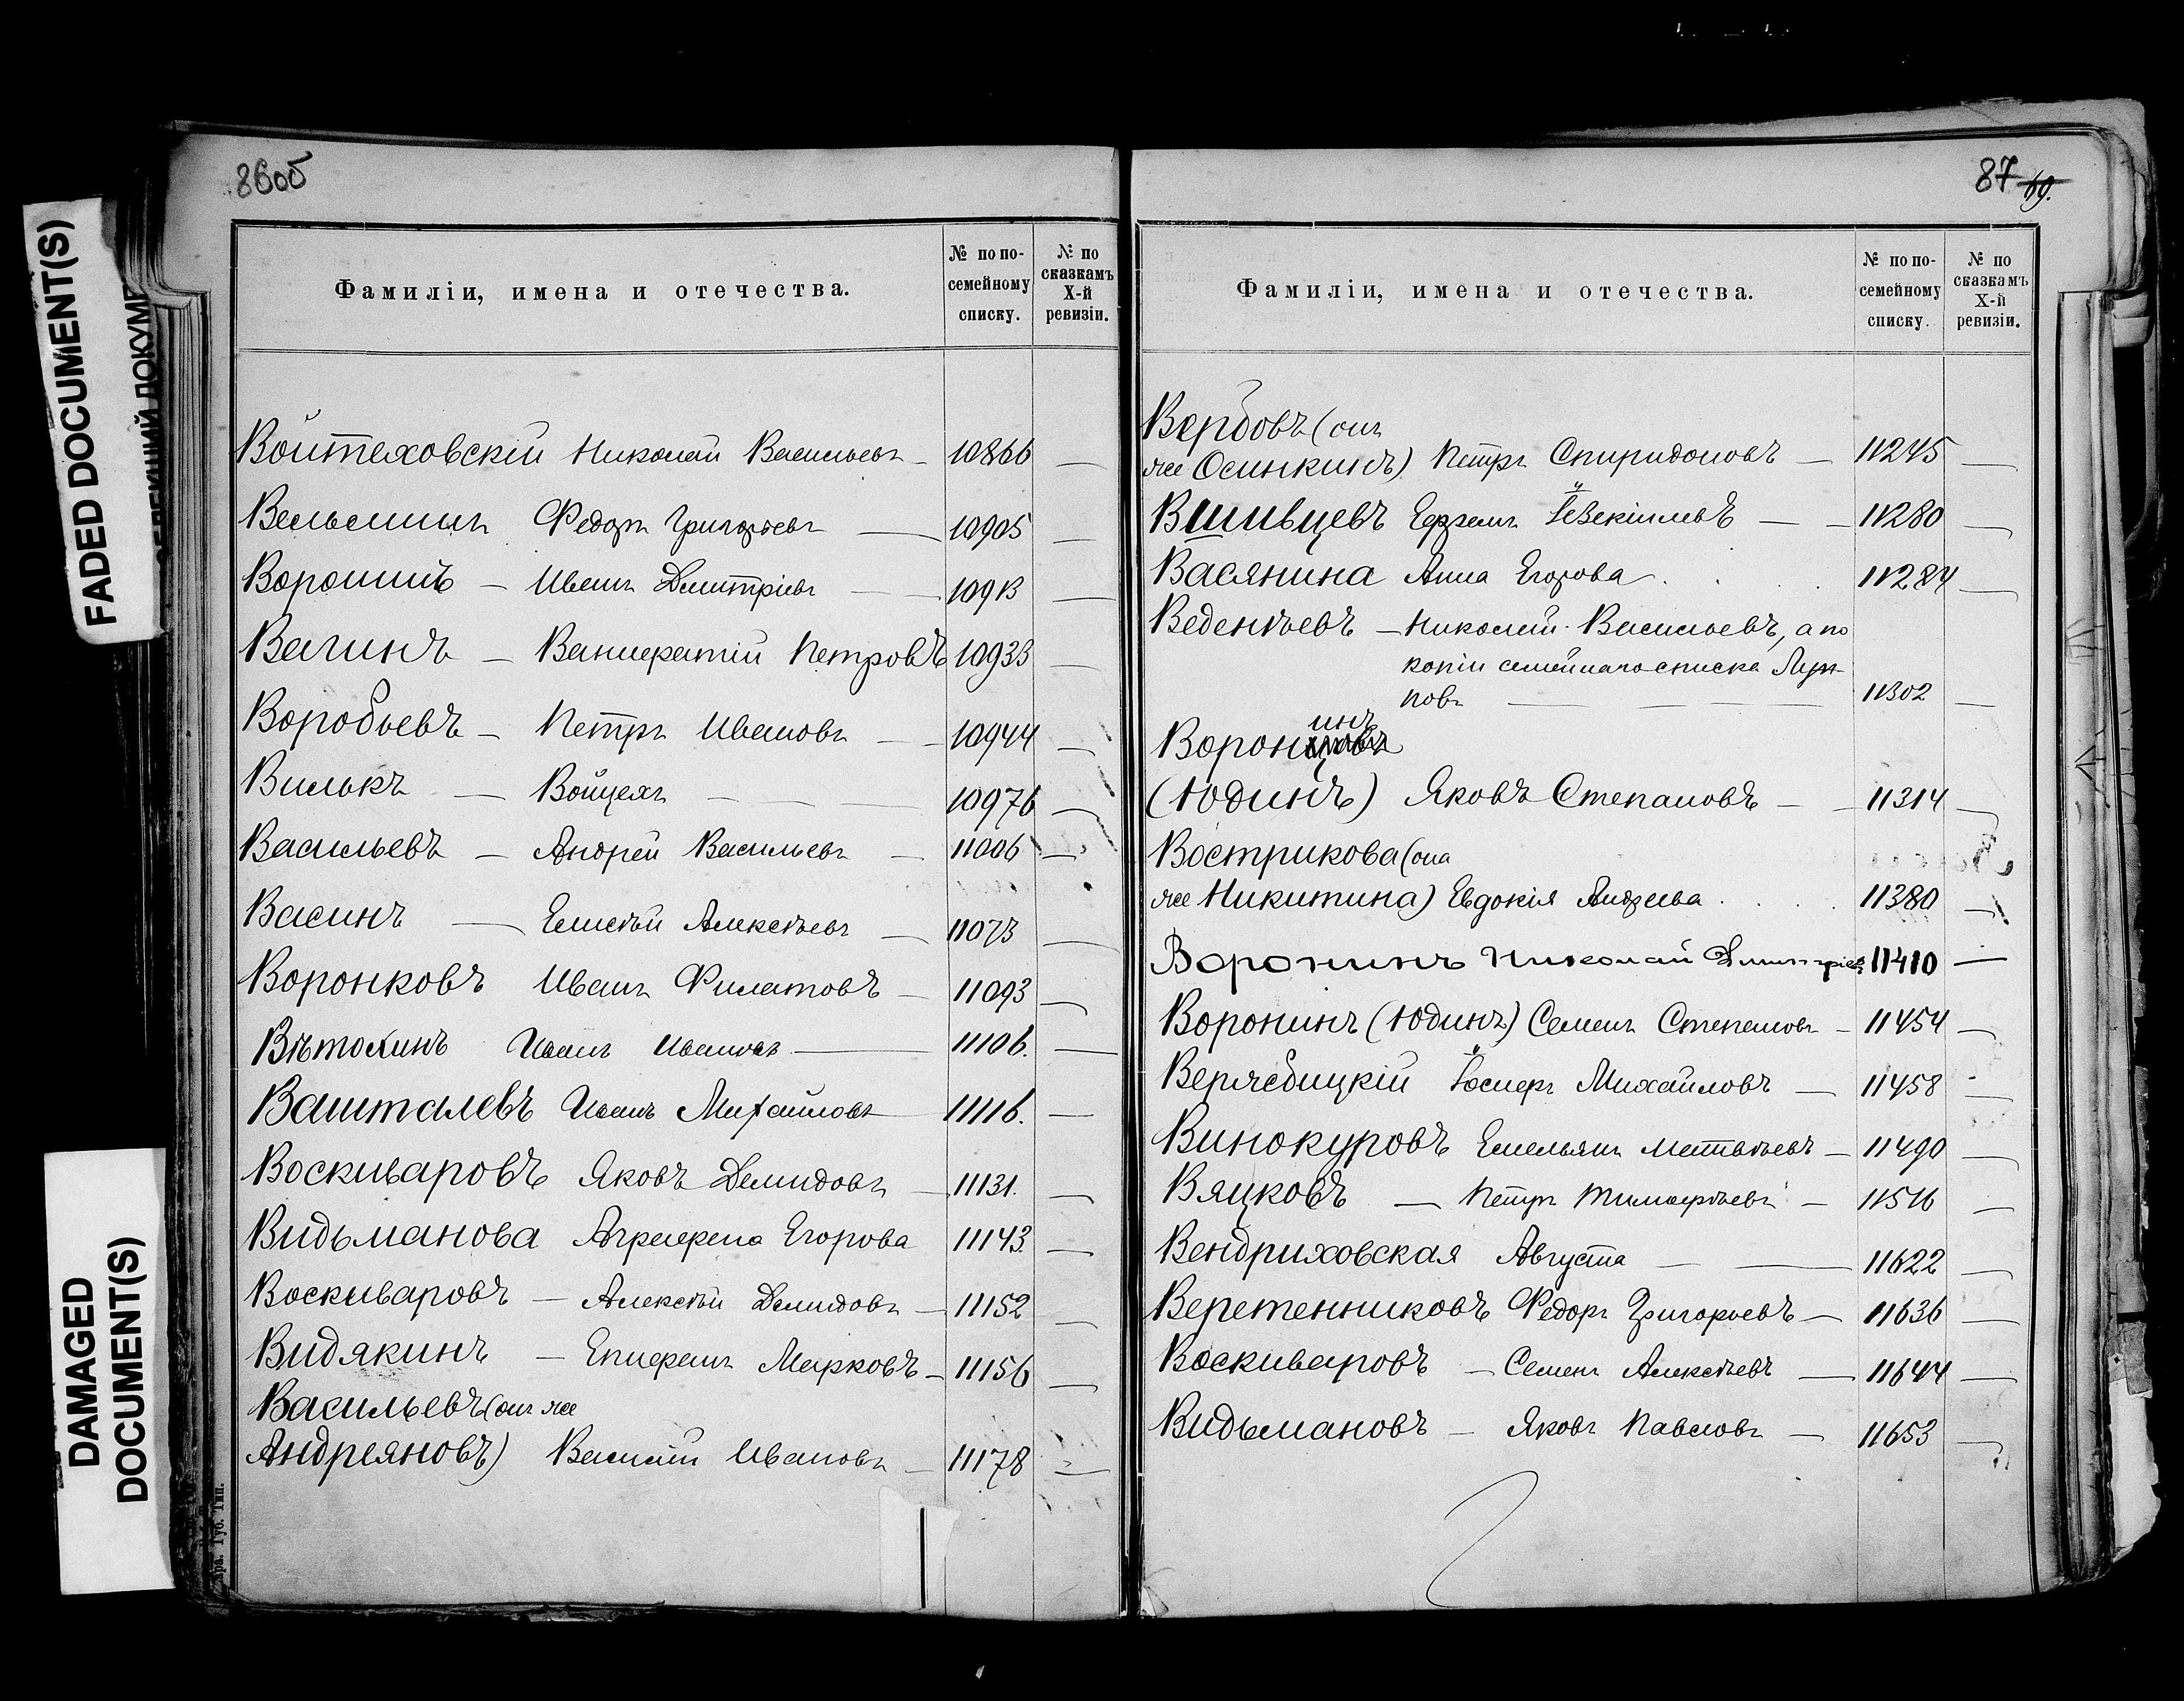 86об
Фамиліи, имена и отечества.
№ по по-
семейному
списку.
№ по
сказкамъ
X-й
ревизіи.
Войтеховскій Николай Васильевъ — 10866 —
Вельсминъ Федоръ Григорьевъ — 10905 —
Воронинъ — Иванъ Дмитріевъ — 10913 —
Вагинъ — Ванифатій Петровъ 10933 —
Воробьевъ — Петръ Ивановъ — 10944 —
Вилькъ — Войцехъ — 10976 —
Васильевъ — Андрей Васильевъ — 11006 —
Васинъ — Елисѣй Алексѣевъ — 11073 —
Воронковъ Иванъ Филатовъ — 11093 —
Вѣтохинъ Иванъ Ивановъ — 11106. —
Вашталевъ Иванъ Михайловъ — 11116. —
Воскиваровъ Яковъ Демидовъ — 11131. —
Видьманова Агрефена Егорова 11143. —
Воскиваровъ — Алексѣй Демидовъ — 11152 —
Видякинъ — Епифанъ Марковъ — 11156 —
Васильевъ (онъ же
Андреяновъ) Василій Ивановъ — 11178 —
Губ. Тип.
87 69.
Фамиліи, имена и отечества.
№ по по-
семейному
списку.
№ по
сказкамъ
X-й
ревизіи.
Вербовъ (онъ
же Осинкинъ) Петръ Спиридоновъ — 11245 —
Вшивцевъ Ефремъ Іезекіилевъ — — 11280 —
Васянина Анна Егорова . . . 11284 —
Веденѣевъ — Николай Васильевъ, а по
копіи семейнаго списка Луп-
повъ — — — 11302 —
инъ
Воронцовъ
(Юдинъ) Яковъ Степановъ — — 11314 —
Вострикова (она
же Никитина) Евдокія Андреева . . . 11380 —
Воронинъ Николай Дмитріевъ 11410 —
Воронинъ (Юдинъ) Семенъ Степановъ — 11454 —
Верясбицкій Іосифъ Михайловъ — 11458 —
Винокуровъ Емельянъ Матвѣевъ — 11490 —
Вяцковъ — Петръ Тимофѣевъ — 11516 —
Вендриховская Августа — — 11622 —
Веретенниковъ Федоръ Григорьевъ — 11636 —
Воскиваровъ — Семенъ Алексѣевъ — 11644 —
Видьмановъ — Яковъ Павловъ — 11653 —
FADED DOCUMENT(S)
DAMAGED
DOCUMENT(S)